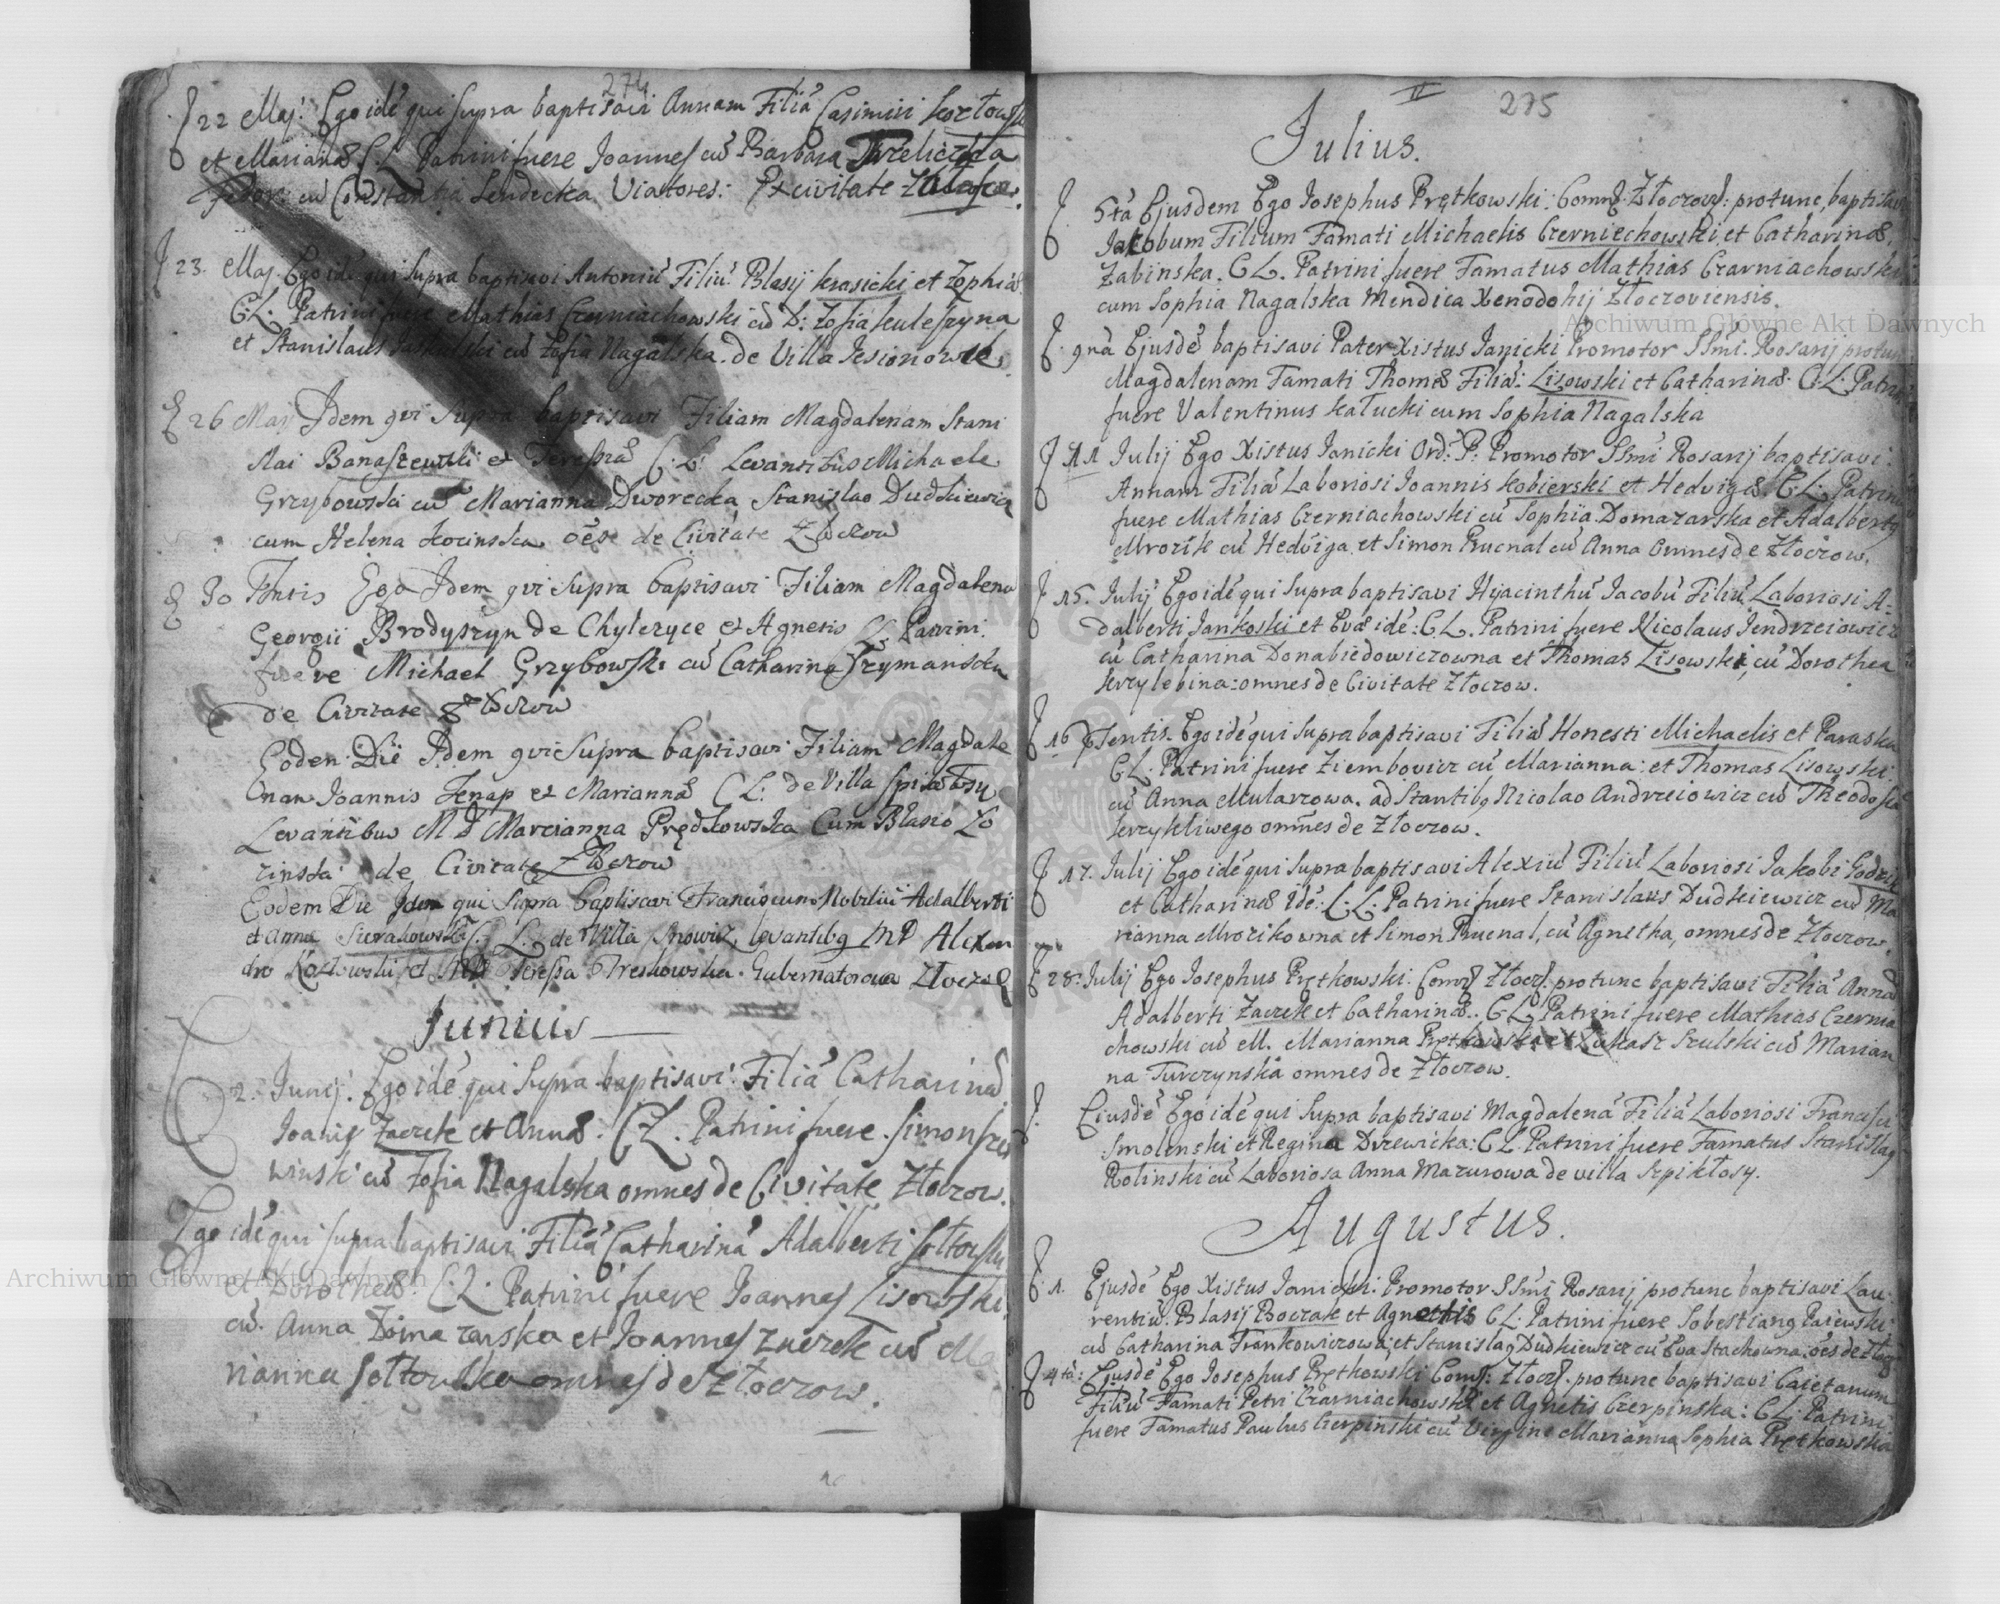 274
22 Maj: Ego idē qui supra baptisavi Annam Filiā Casimiri Kozłowski
et Mariannæ C.L. Patrini fuere Joannes cū Barbara
cū Constantia Lendecka Viatores: Ex civitate
23. Maj. Ego idē qui supra baptisavi Antoniū Filiū Blasij Krasicki et Zophiæ
C.L. Patrini fuere Mathias Czerniachowski cū D: Zofia Kuleszyna
et Stanislaus cū Zofia Nagalska. de Villa Jesionowce.
26 Maij Idem qvi supra baptisavi Filiam Magdalenam Stani
slai Banaszewski et C:L: Levantibus Michaele
Grzybowski cū Marianna Dworecka Stanislao Dudkiewicz
cum Helena Kocinska oēs de Civitate Złoczow
30 Ego Idem qvi supra baptisavi Filiam Magdalena
Georgii Brodyszyn de Chylczyce et Agnetis LL. Patrini
fuere Michael Grzybowski cū Catharina Szymanska
de Civitate Złoczow
Eodem Die Idem qvi supra baptisavi Filiam Magdale
nam Joannis et Mariannæ C L: de Villa
Levantibus M D Marcianna Prędkowska Cum Blasio Ło
zinski de Civitate Złoczow
Eodem Die Idem qui supra baptisavi Franciscum Nobiliū Adalberti
et Annæ Sierakowski C. L. de Villa levantibq MD Alexan
dro Kozłowski et Teressa Treskowska. Gubernatorowa
Junius
2. Junij. Ego idē qui supra baptisavi Filiā Catharinā
Joanis Zaczek et Annæ. C.L. Patrini fuere Simon
winski cū Zofia Nagalska omnes de Civitate Złoczow.
Ego idē qui supra baptisavi Filiā Catharinā Adalberti Sołtowski
et Dorotheæ. C.L. Patrini fuere Joannes Lisowski
cū. Anna Domazarska et Joannes Zaczek cū Ma
rianna Sołtowska omnes de Złoczow.
275
Julius.
5ta Ejusdem Ego Josephus Prętkowski: Comẽ. Złoczow: protunc, baptisavi
Jacobum Filium Famati Michaelis Czerniechowski, et Catharinæ,
Zabinska. C L. Patrini fuere Famatus Mathias Czarniachowski
cum Sophia Nagalska Mendica Xenodohij Złoczoviensis.
9na Ejusdē baptisavi Pater Xistus Janicki Promotor SSmi. Rosarij protunc
Magdalenam Famati Thomæ Filiā: Lisowski et Catharinæ. C: L: Patrini
fuere Valentinus Kałucki cum Sophia Nagalska
11 Julij Ego Xistus Janicki Ord: P: Promotor SSmi Rosarij baptisavi
Annam Filiā Laboriosi Joannis Kobierski et Hedvigæ. C: L: Patrini
fuere Mathias Czerniachowski cū Sophija Domazarska et Adalbertq
Mrozik cū Hedviga et Simon Prucnal cū Anna omnes de Złoczow.
15. Julij Ego idē qui supra baptisavi Hyacinthū Jacobū Filiū Laboriosi A-
dalberti Jankoski et Evæ idē: C.L. Patrini fuere Nicolaus Jendrzeiowicz
cū Catharina Donabiedowiczowna et Thomas Lisowski, cū Dorothea
Krzylepina: omnes de Civitate Złoczow.
16 Ejusdentis. Ego idē qui supra baptisavi Filiā Honesti Michaelis et Paraska
C L. Patrini fuere Ziembovicz cū Marianna: et Thomas Lisowski
cū Anna Mularzowa. ad Stantibq Nicolao Andrzeiowicz cū Theodosia
Krzykliwego omnes de Złoczow.
17. Julij Ego idē qui supra baptisavi Alexiū Filiū Laboriosi Jakobi
et Catharinæ idē: C.L: Patrini fuere Stanislaus Dudkiewicz cū Ma
rianna Mrozikowna et Simon Prucnal, cū Agnetha, omnes de Złoczow.
28: Julij Ego Josephus Prętkowski: Comẽ Złocz: protunc baptisavi Filiā Annā
Adalberti Zaczek et Catharinæ. C L Patrini fuere Mathias Czernia
chowski cū M. Marianna Prętkowska et Łukasz Szulski cū Marian
na Turczynska omnes de Złoczow.
Eiusdē Ego idē qui supra baptisavi Magdalenā Filiā Laboriosi Francisci
Smolenski et Regina Drzewicka: C L Patrini fuere Famatus Stanislaq
Rolinski cū Laboriosa Anna Mazurowa de villa Szpikłosy.
Augustus.
1. Ejusdē Ego Xistus Janicki. Promotor SSmi Rosarij protunc baptisavi Lau-
rentiū. Blasij Boczak et Agnethis C L. Patrini fuere Sobestianq Paiewski
cū Catharina Frankowiczowa et Stanislaq Dudkiewicz cū Eva Stachowna: oēs de Złocz
4ta: Ejusdē Ego Josephus Prętkowski Comẽ: Złocz: protunc baptisavi Caietanum
Filiū Famati Petri Czarniachowski et Agnetis Czerpinska: C L. Patrini
fuere Famatus Paulus Czerpinski cū Virgine Marianna Sophia Prętkowska
Archiwum Główne Akt Dawnych
Archiwum Główne Akt Dawnych